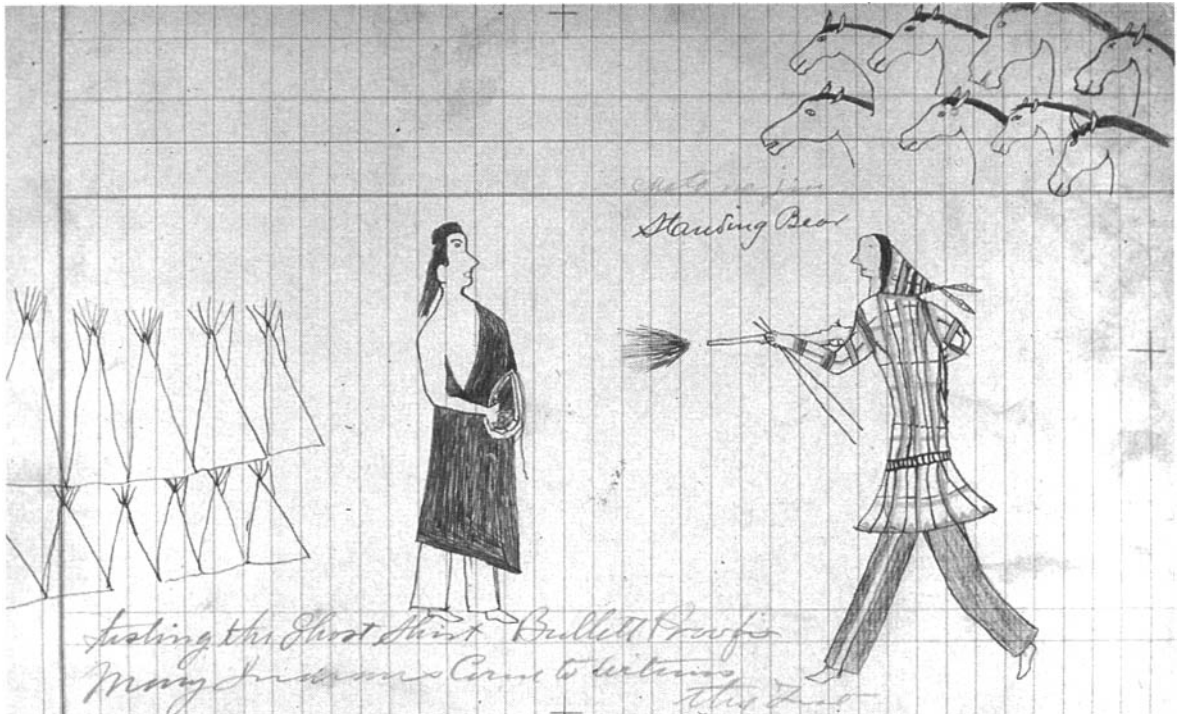 Standing Bear
testing the Ghost Shirt Bullett Proof
Many Indians Came to witness
this